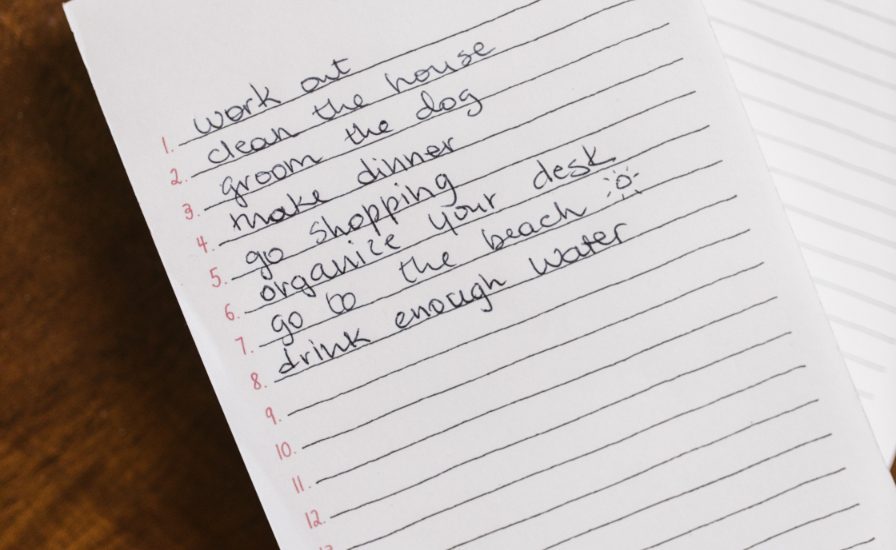 1. work out
2. clean the house
3. groom the dog
4. make dinner
5. go shopping
6. organize your desk
7. go to the beach
8. drink enough water
9.
10.
11.
12.